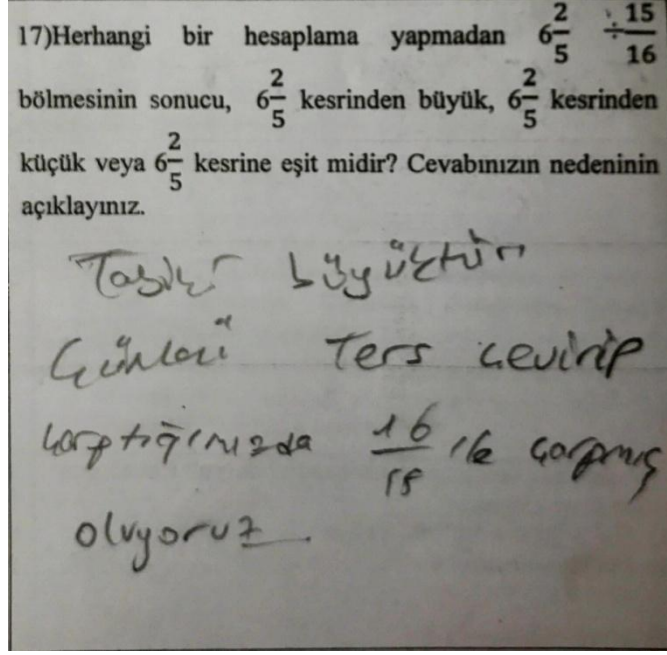 17)Herhangi bir hesaplama yapmadan 6 2/5 ÷ 15/16
bölmesinin sonucu, 6 2/5 kesrinden büyük, 6 2/5 kesrinden
küçük veya 6 2/5 kesrine eşit midir? Cevabınızın nedeninin
açıklayınız.
Tabiki büyüktür
Çünkü Ters çevirip
çarptığımızda 16/15 ile çarpmış
oluyoruz.